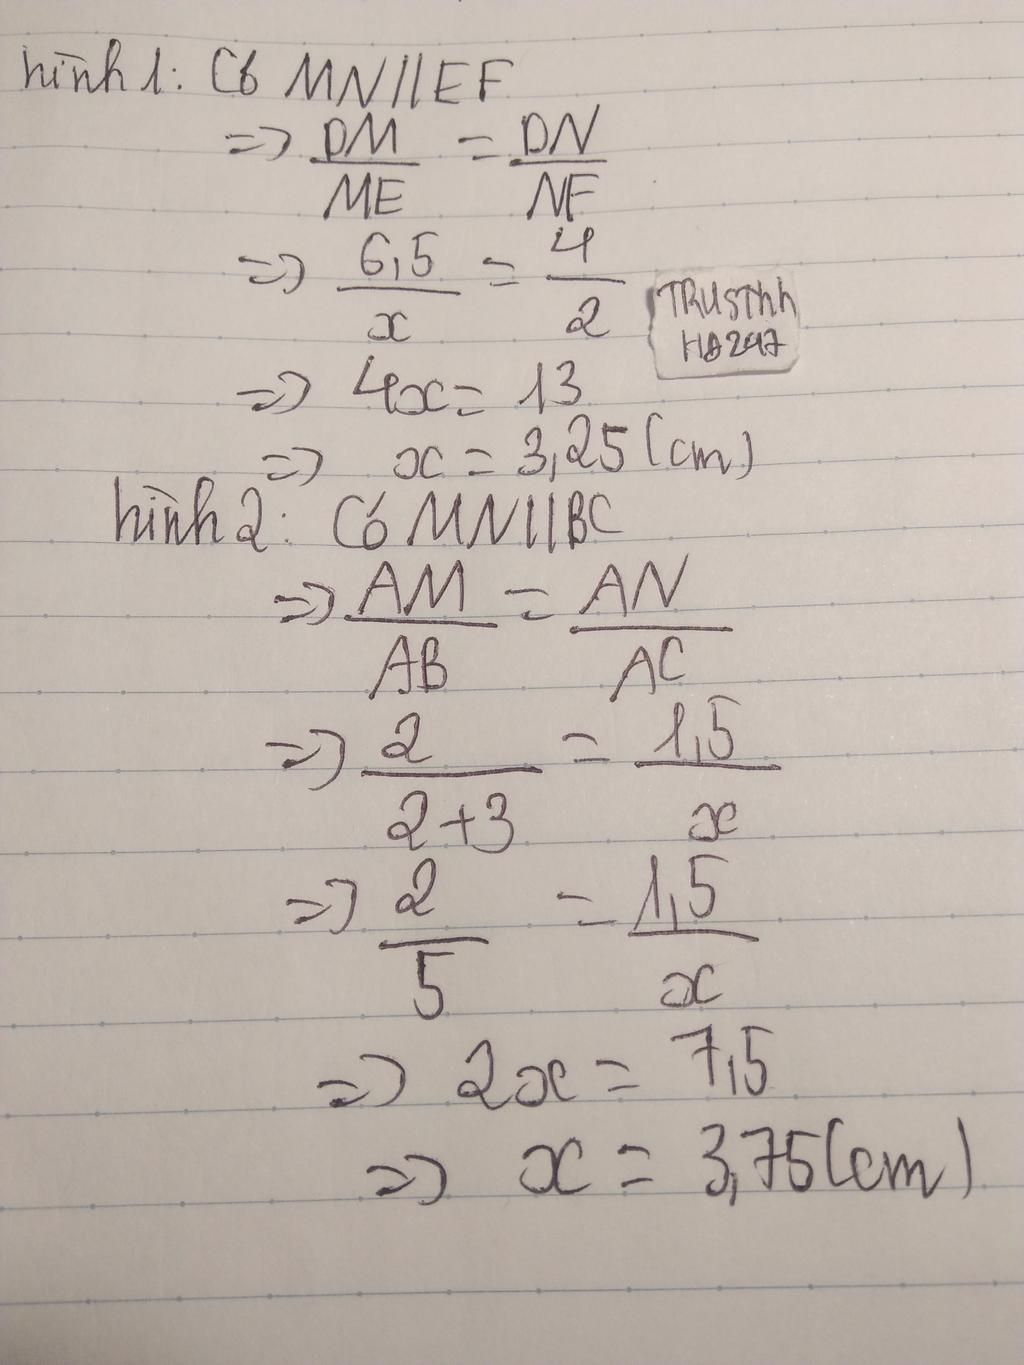 hình 1: Có MN//EF
=> DM/ME = DN/NF
=> 6,5/x = 4/2
TRUSThh
HD247
=> 4x = 13
=> x = 3,25 (cm)
hình 2: Có MN//BC
=> AM/AB = AN/AC
=> 2/2+3 = 1,5/x
=> 2/5 = 1,5/x
=> 2x = 7,5
=> x = 3,75 (cm)